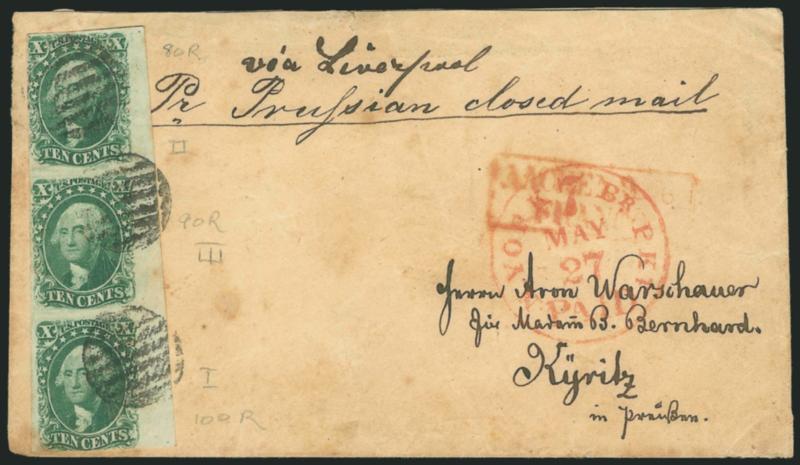 X X
TEN CENTS
X U.S. POSTAGE X
TEN CENTS
X U.S. POSTAGE X
TEN CENTS
80R
II
90R
III
I
100R
via Liverpool
Pr Prußian closed mail
BR. PKT
MAY
27
PAID
Herrn Aron Warschauer
für Madam B. Bernhard.
Kÿritz
in Preußen.